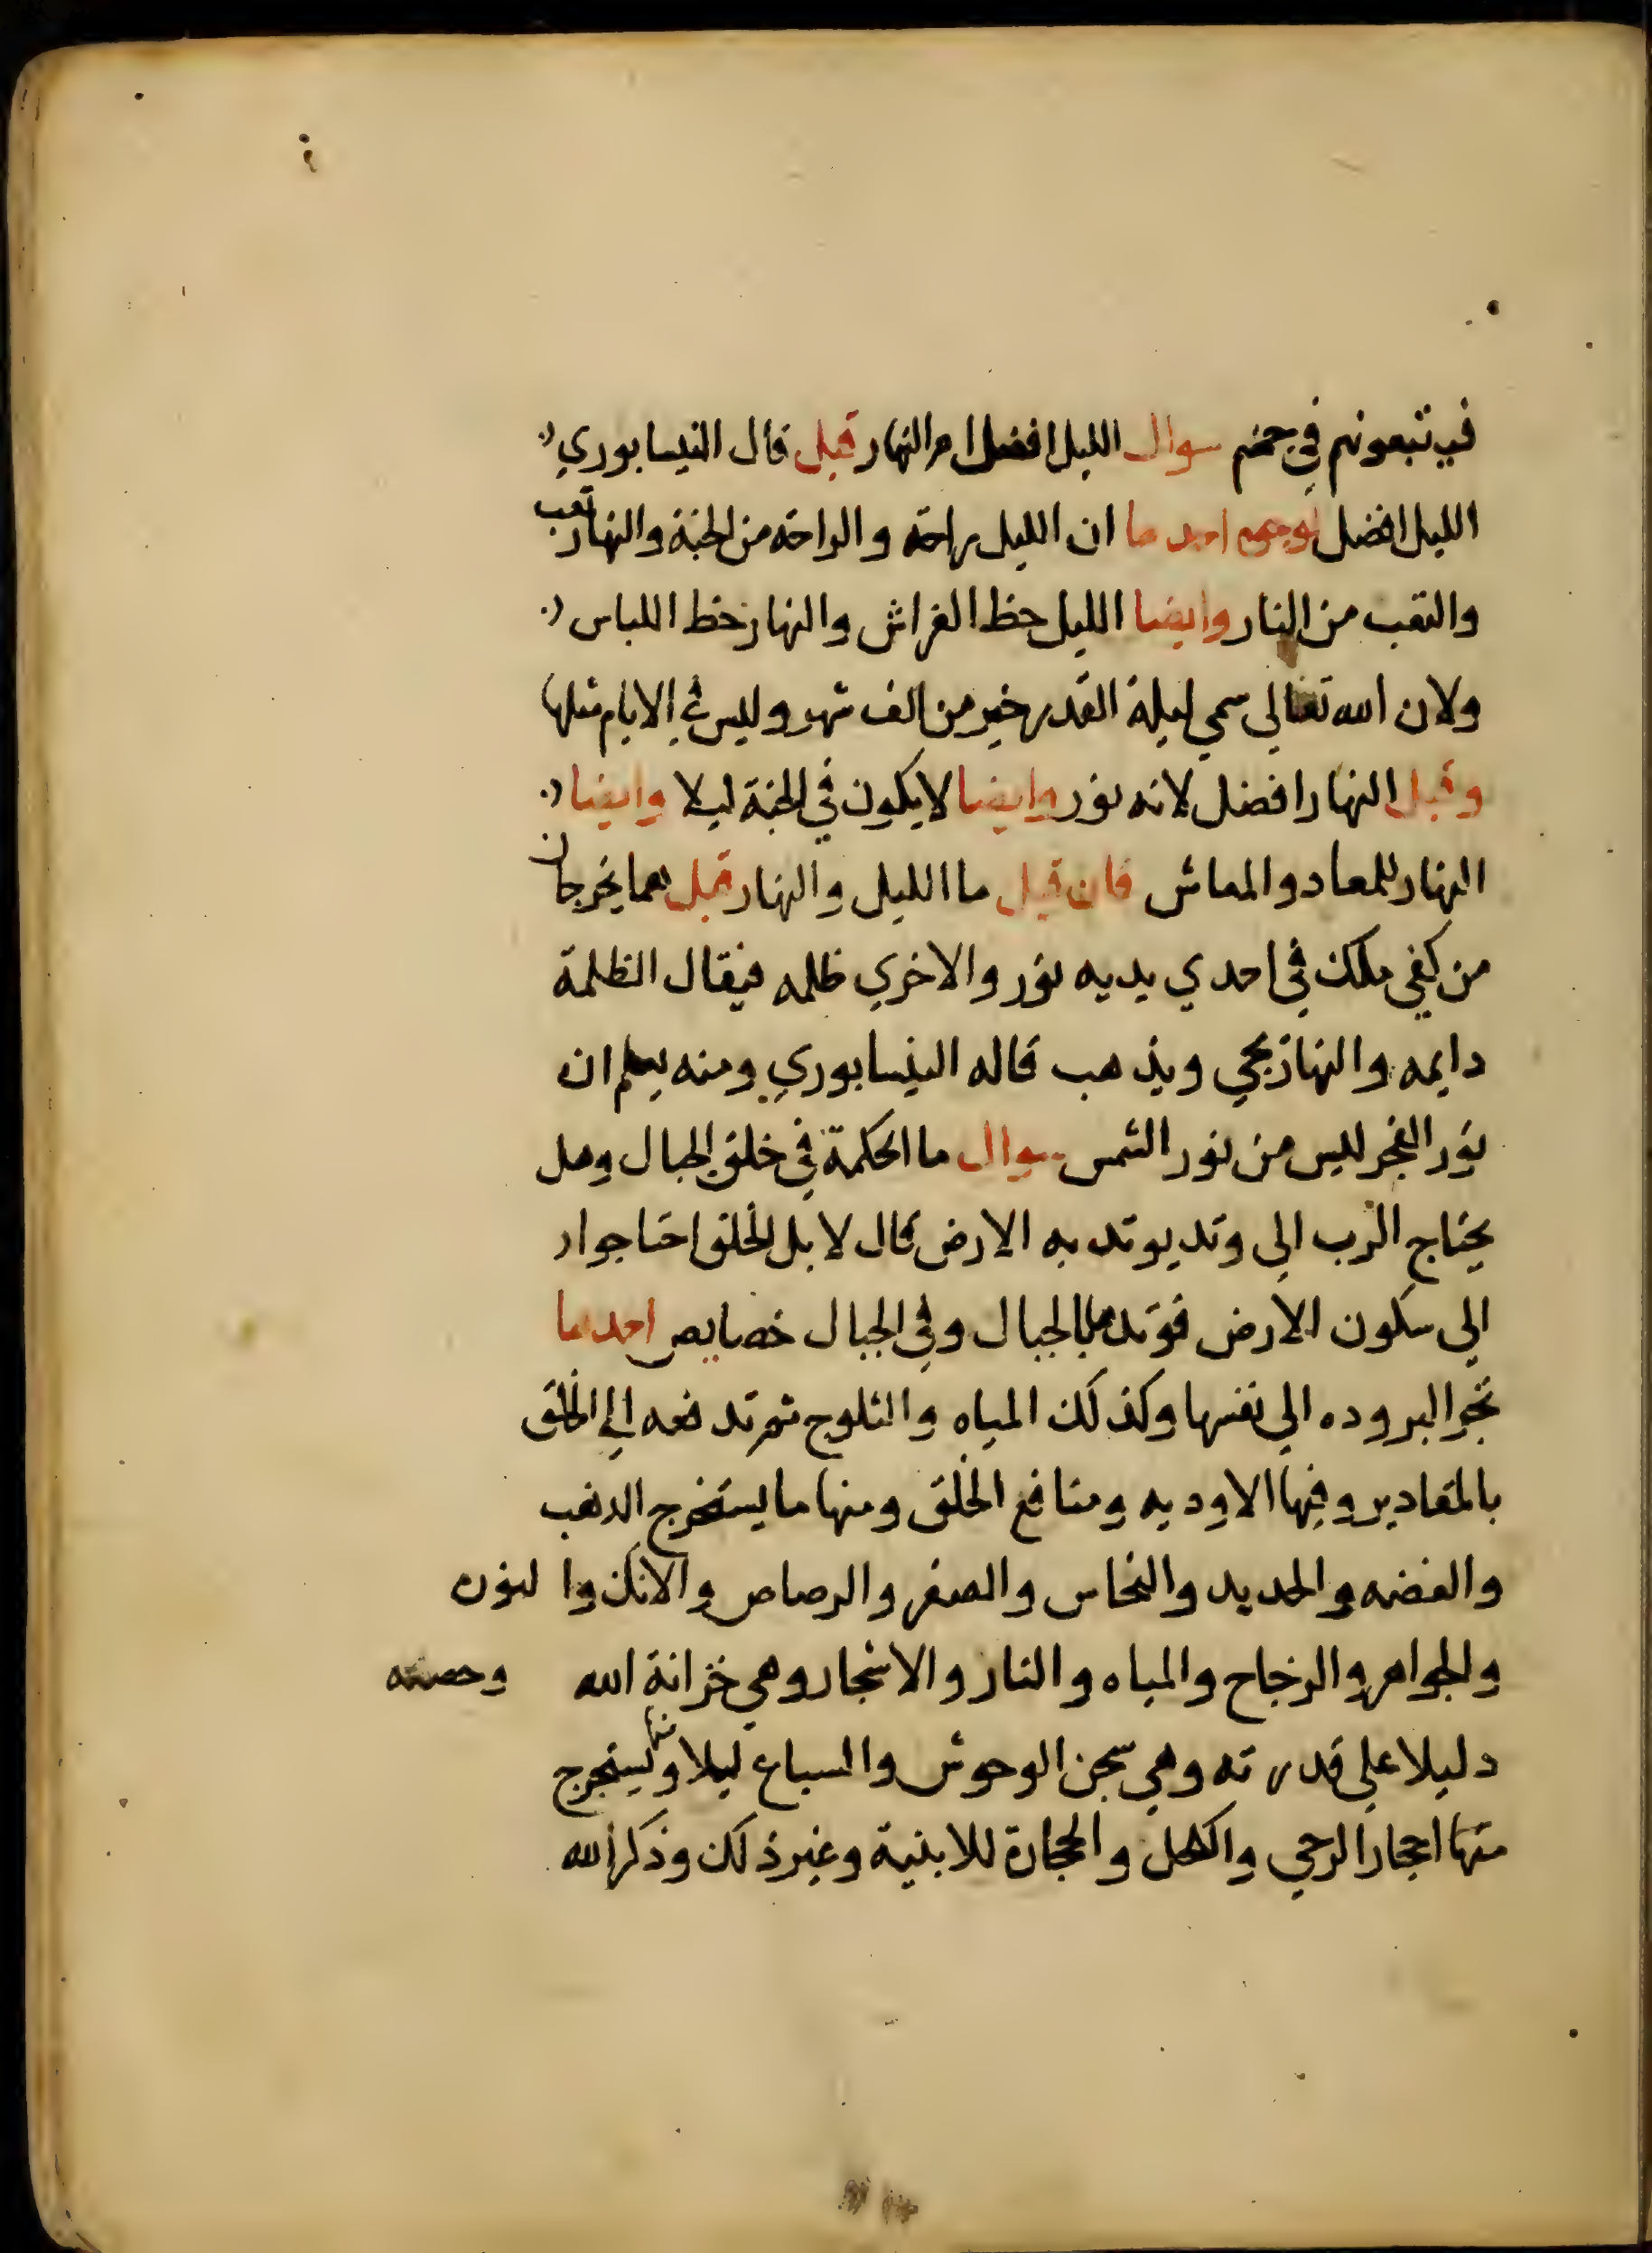 فيتبعونهم في جهنم سوال الليل افضل ام النهار قيل قال النيسابوري
الليل افضل لوجوه احدها ان الليل راحة والراحة من الجنة والنهار تعب
والتعب من النار وايضا الليل حظ الفراش والنهار حظ اللباس
ولان الله تعالى سمي ليلة القدر خير من الف شهر وليس في الايام مثلها
وقيل النهار افضل لانه نور وايضا لا يكون في الجنة ليلا وايضا
النهار للمعاد والمعاش فان قيل ما الليل والنهار قيل هما يخرجان
من كفي ملك في احدي يديه نور والاخري ظلمه فيقال الظلمة
دايمه والنهار يجي ويذهب قاله النيسابوري ومنه يعلم ان
نور الفجر ليس من نور الشمس سوال ما الحكمة في خلق الجبال وهل
يحتاج الرب الي وتد يوتد به الارض قال لا بل الخلق احتاجوا
الي سكون الارض فوتدها بالجبال وفي الجبال خصايص احدها
تجر البروده الي نفسها وكذلك المياه والثلوج ثم تدفعه الي الخلق
بالمقادير وفيها الاوديه ومنافع الخلق ومنها ما يستخرج الذهب
والفضه والحديد والنحاس والصفر والرصاص والانك
والجواهر والزجاج والمياه والنار والاشجار وهي خزانة الله
دليلا علي قدرته وهي سجن الوحوش والسباع ليلا ويستخرج
منها احجار الرحي والكحل والحجارة للابنية وغير ذلك وذكر الله